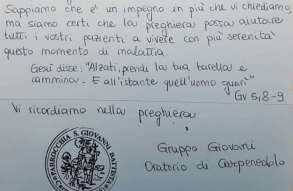 Sappiamo che e' un impegno in più che vi chiediamo,
ma siamo certi che la preghiera possa aiutare
tutti i vostri pazienti a vivere con più serenita'
questo momento di malattia.
Gesù disse: "Alzati, prendi la tua barella e
cammina. E all'istante quell'uomo guarì"
Gv 5,8-9
Vi ricordiamo nella preghiera
Gruppo Giovani
Oratorio di Carpenedolo
PARROCCHIA S. GIOVANNI BATTISTA